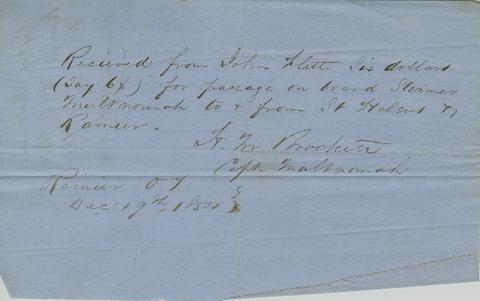 Recieved from John Flett Six dollars
(Say 6$) for passage on board Steamer
Multnomah to & from St Helens &
Rainier.
Capt. Multnomah
Rainier O.T.
Dec. 19th, 1851